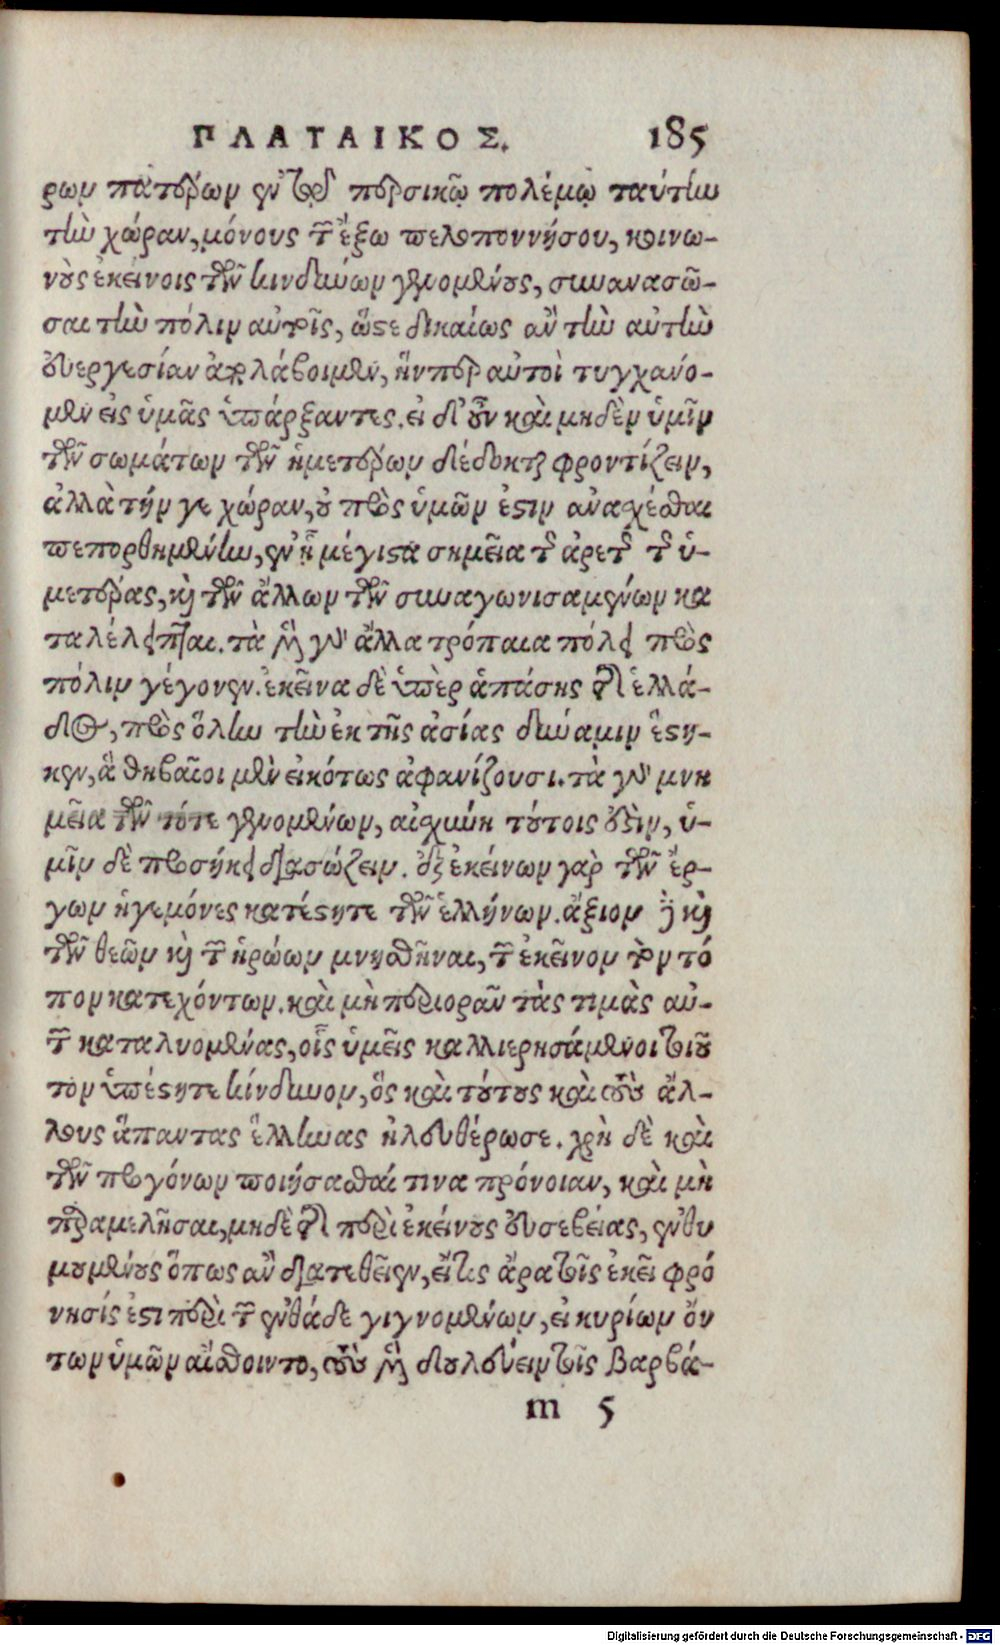 ΠΛΑΤΑΙΚΟΣ. 185
ρων πατέρων ἐν τῷ περσικῷ πολέμῳ ταύτην
τὴν χώραν, μόνους τῶν ἔξω πελοποννήσου, κοινω-
νοὺς ἐκείνοις τῶν κινδύνων γενομένους, συνανασῶ-
σαι τὴν πόλιν αὐτοῖς, ὥστε δικαίως ἂν τὴν αὐτὴν
εὐεργεσίαν ἀπολάβοιμεν, ἥνπερ αὐτοὶ τυγχάνο-
μεν εἰς ὑμᾶς ὑπάρξαντες. εἰ δ' οὖν καὶ μηδὲν ὑμῖν
τῶν σωμάτων τῶν ἡμετέρων δέδοκται φροντίζειν,
ἀλλὰ τήν γε χώραν, οὐ πρὸς ὑμῶν ἐστιν ἀνασχέσθαι
πεπορθημένην, ἐν ᾗ μέγιστα σημεῖα τῆς ἀρετῆς τῆς ὑ-
μετέρας, καὶ τῶν ἄλλων τῶν συναγωνισαμένων κα
ταλέλειπται. τὰ μὲν γὰρ ἄλλα τρόπαια πόλει πρὸς
πόλιν γέγονεν. ἐκεῖνα δὲ ὑπὲρ ἁπάσης τῆς ἑλλά-
δος, πρὸς ὅλην τὴν ἐκ τῆς ἀσίας δύναμιν ἕστη-
κεν, ἃ θηβαῖοι μὲν εἰκότως ἀφανίζουσι. τὰ γὰρ μνη
μεῖα τῶν τότε γενομένων, αἰσχύνη τούτοις ἐστὶν, ὑ-
μῖν δὲ προσήκει διασώζειν. ἐξ ἐκείνων γὰρ τῶν ἔρ-
γων ἡγεμόνες κατέστητε τῶν ἑλλήνων. ἄξιον δὲ καὶ
τῶν θεῶν καὶ τῶν ἡρώων μνησθῆναι, τῶν ἐκεῖνον τὸν τό
πον κατεχόντων. καὶ μὴ περιορᾶν τὰς τιμὰς αὐ-
τῶν καταλυομένας, οἷς ὑμεῖς καλλιερησάμενοι τοιοῦ
τον ὑπέστητε κίνδυνον, ὃς καὶ τούτους καὶ τοὺς ἄλ-
λους ἅπαντας ἕλληνας ἠλευθέρωσε. χρὴ δὲ καὶ
τῶν προγόνων ποιήσασθαί τινα πρόνοιαν, καὶ μὴ
παραμελῆσαι, μηδὲ τῆς περὶ ἐκείνους εὐσεβείας, ἐνθυ
μουμένους ὅπως ἂν διατεθεῖεν, εἴ τις ἄρα τοῖς ἐκεῖ φρό
νησίς ἐστι περὶ τῶν ἐνθάδε γιγνομένων, εἰ κυρίων ὄν
των ὑμῶν αἴσθοιντο, τοὺς μὲν δουλεύειν τοῖς βαρβά-
m 5
Digitalisierung gefördert durch die Deutsche Forschungsgemeinschaft - DFG